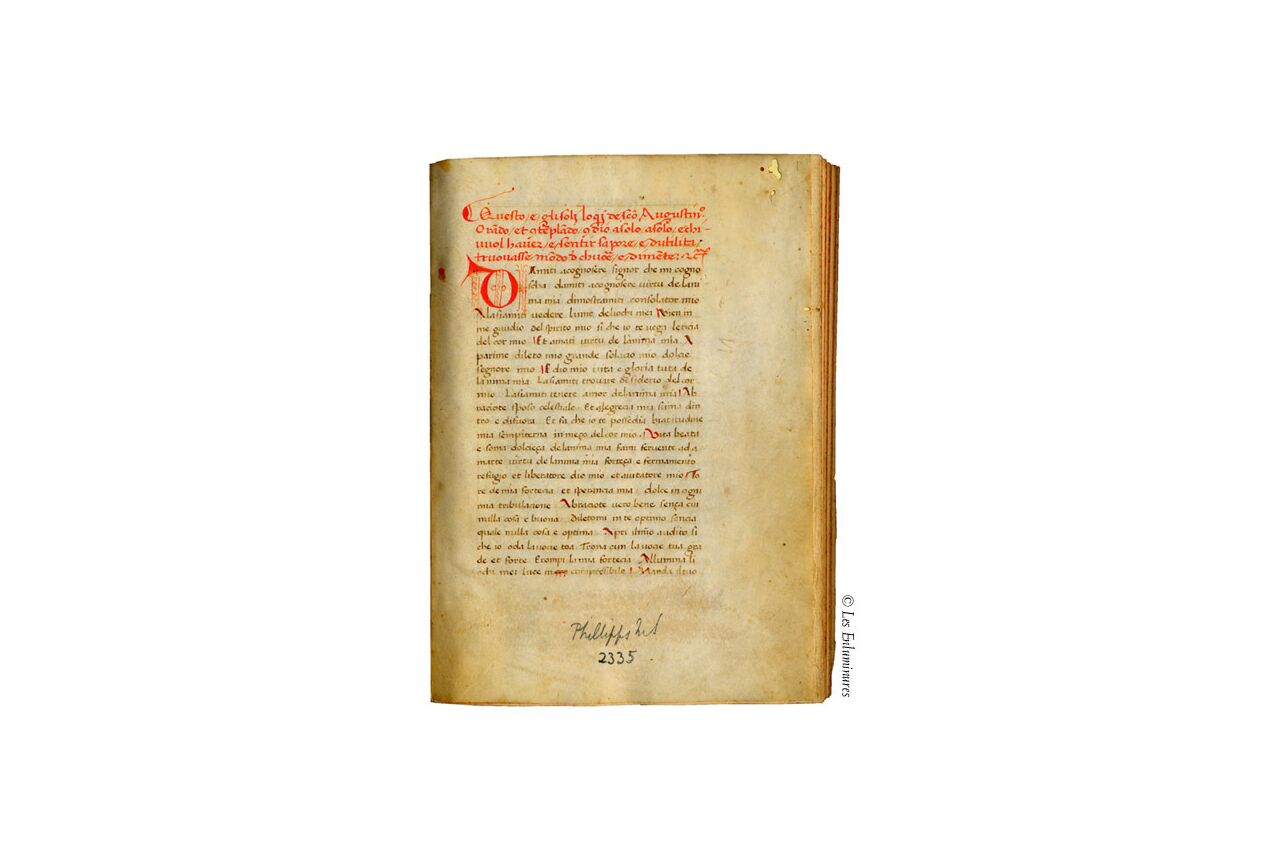 Questo e gli soli loqj de scō Augustin°.
Orādo et ɔtēplādo ɔ dio a solo a solo e chi
vuol haver e sentir sapore e dutilita
truovasse
Damiti acognosere signor che mi cogno
scha damiti acognosere virtu de lani
ma mia dimostramiti consolator mio
Alasiamiti vedere lume deliochi mei Vien in
me gaudio del spirito mio si che io te vega leticia
del cor mio Et amati virtu de lanima mia. A
parime dileto mio grande solacio mio dolcie
segnore mio E dio mio vita e gloria tuta de
lanima mia Lasiamiti trovare desiderio del cor
mio Lasiamiti tenere amor delanima mia Ab
raciote sposo celestiale Et alegrecia mia suma din
tro e difuora Et fa che io te possedia biatitudine
mia sempiterna in meço del cor mio Vita beata
e soma dolcieça delanima mia fami fervente ad a
marte virtu de lanima mia forteça e fermamento
refugio et liberatore dio mio et aiutatore mio To
re de mia fortecia et sperancia mia dolce in ogni
mia tribulacione Abraciote vero bene sença cui
nulla cosa e buona diletomi in te optimo sencia
quale nulla cosa e optima Apri audito si
che io oda la vocie toa Trona cun la vocie tua gra
de et forte E rompi la mia fortecia Allumina li
ochi mei luce Manda il tuo
Phillipps MS
2335
© Les Enluminures